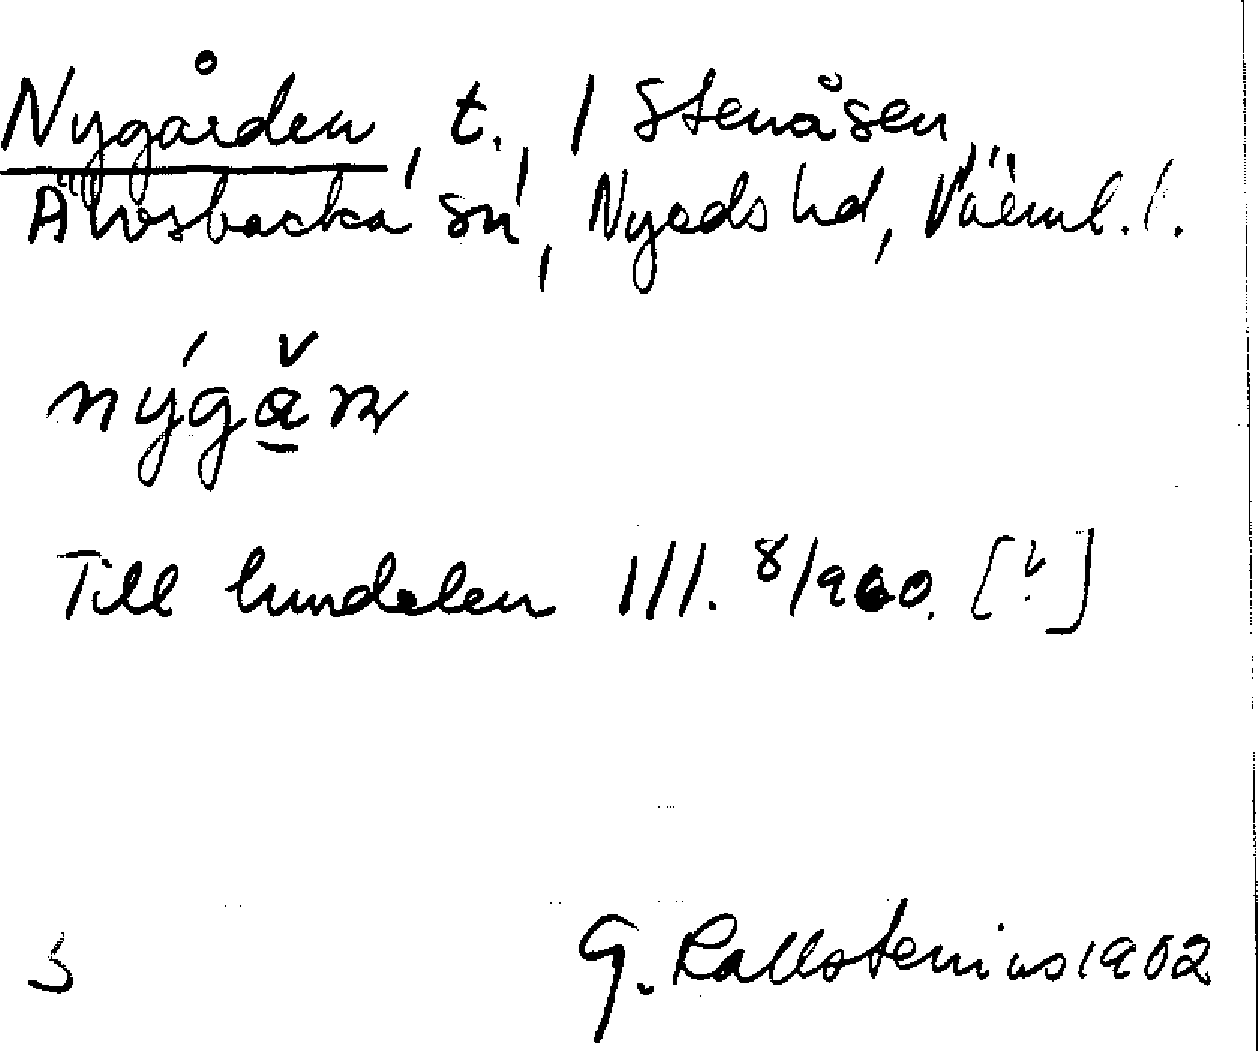 Nygården, t., / Stenåsen,
Älvsbacka sn, Nyeds hd, Värml. l.
nýgǎ̱ṇ
Till hundelen 1/1. 8/960. [?]
G. Kallstenius 1902